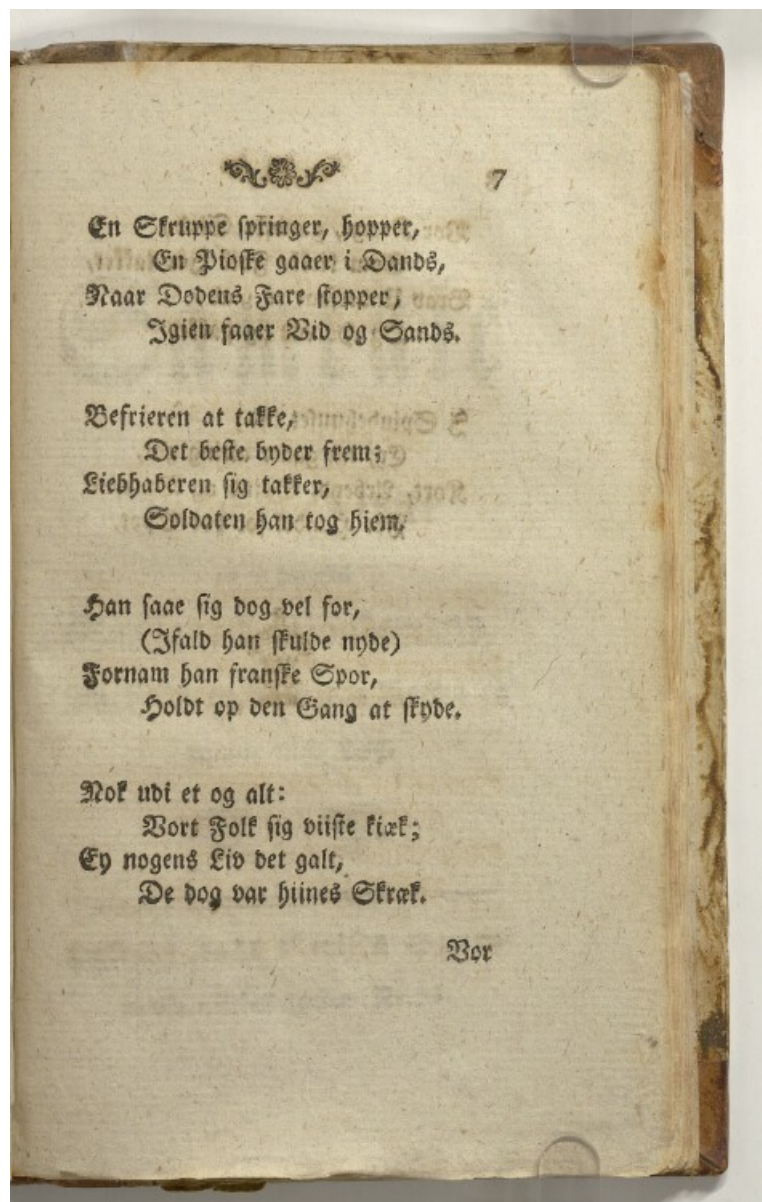 7
En Skruppe springer, hopper,
En Pioske gaaer i Dands,
Naar Dodens Fare stopper,
Igien faaer Vid og Sands.
Befrieren at takke,
Det beste byder frem;
Liebhaberen sig takker,
Soldaten han tog hiem.
Han saae sig dog vel for,
(Ifald han skulde nyde)
Fornam han franske Spor,
Holdt op den Gang at skyde.
Nok udi et og alt:
Vort Folk sig viiste kiæk;
Ey nogens Liv det galt,
De dog var hiines Skræk.
Vor